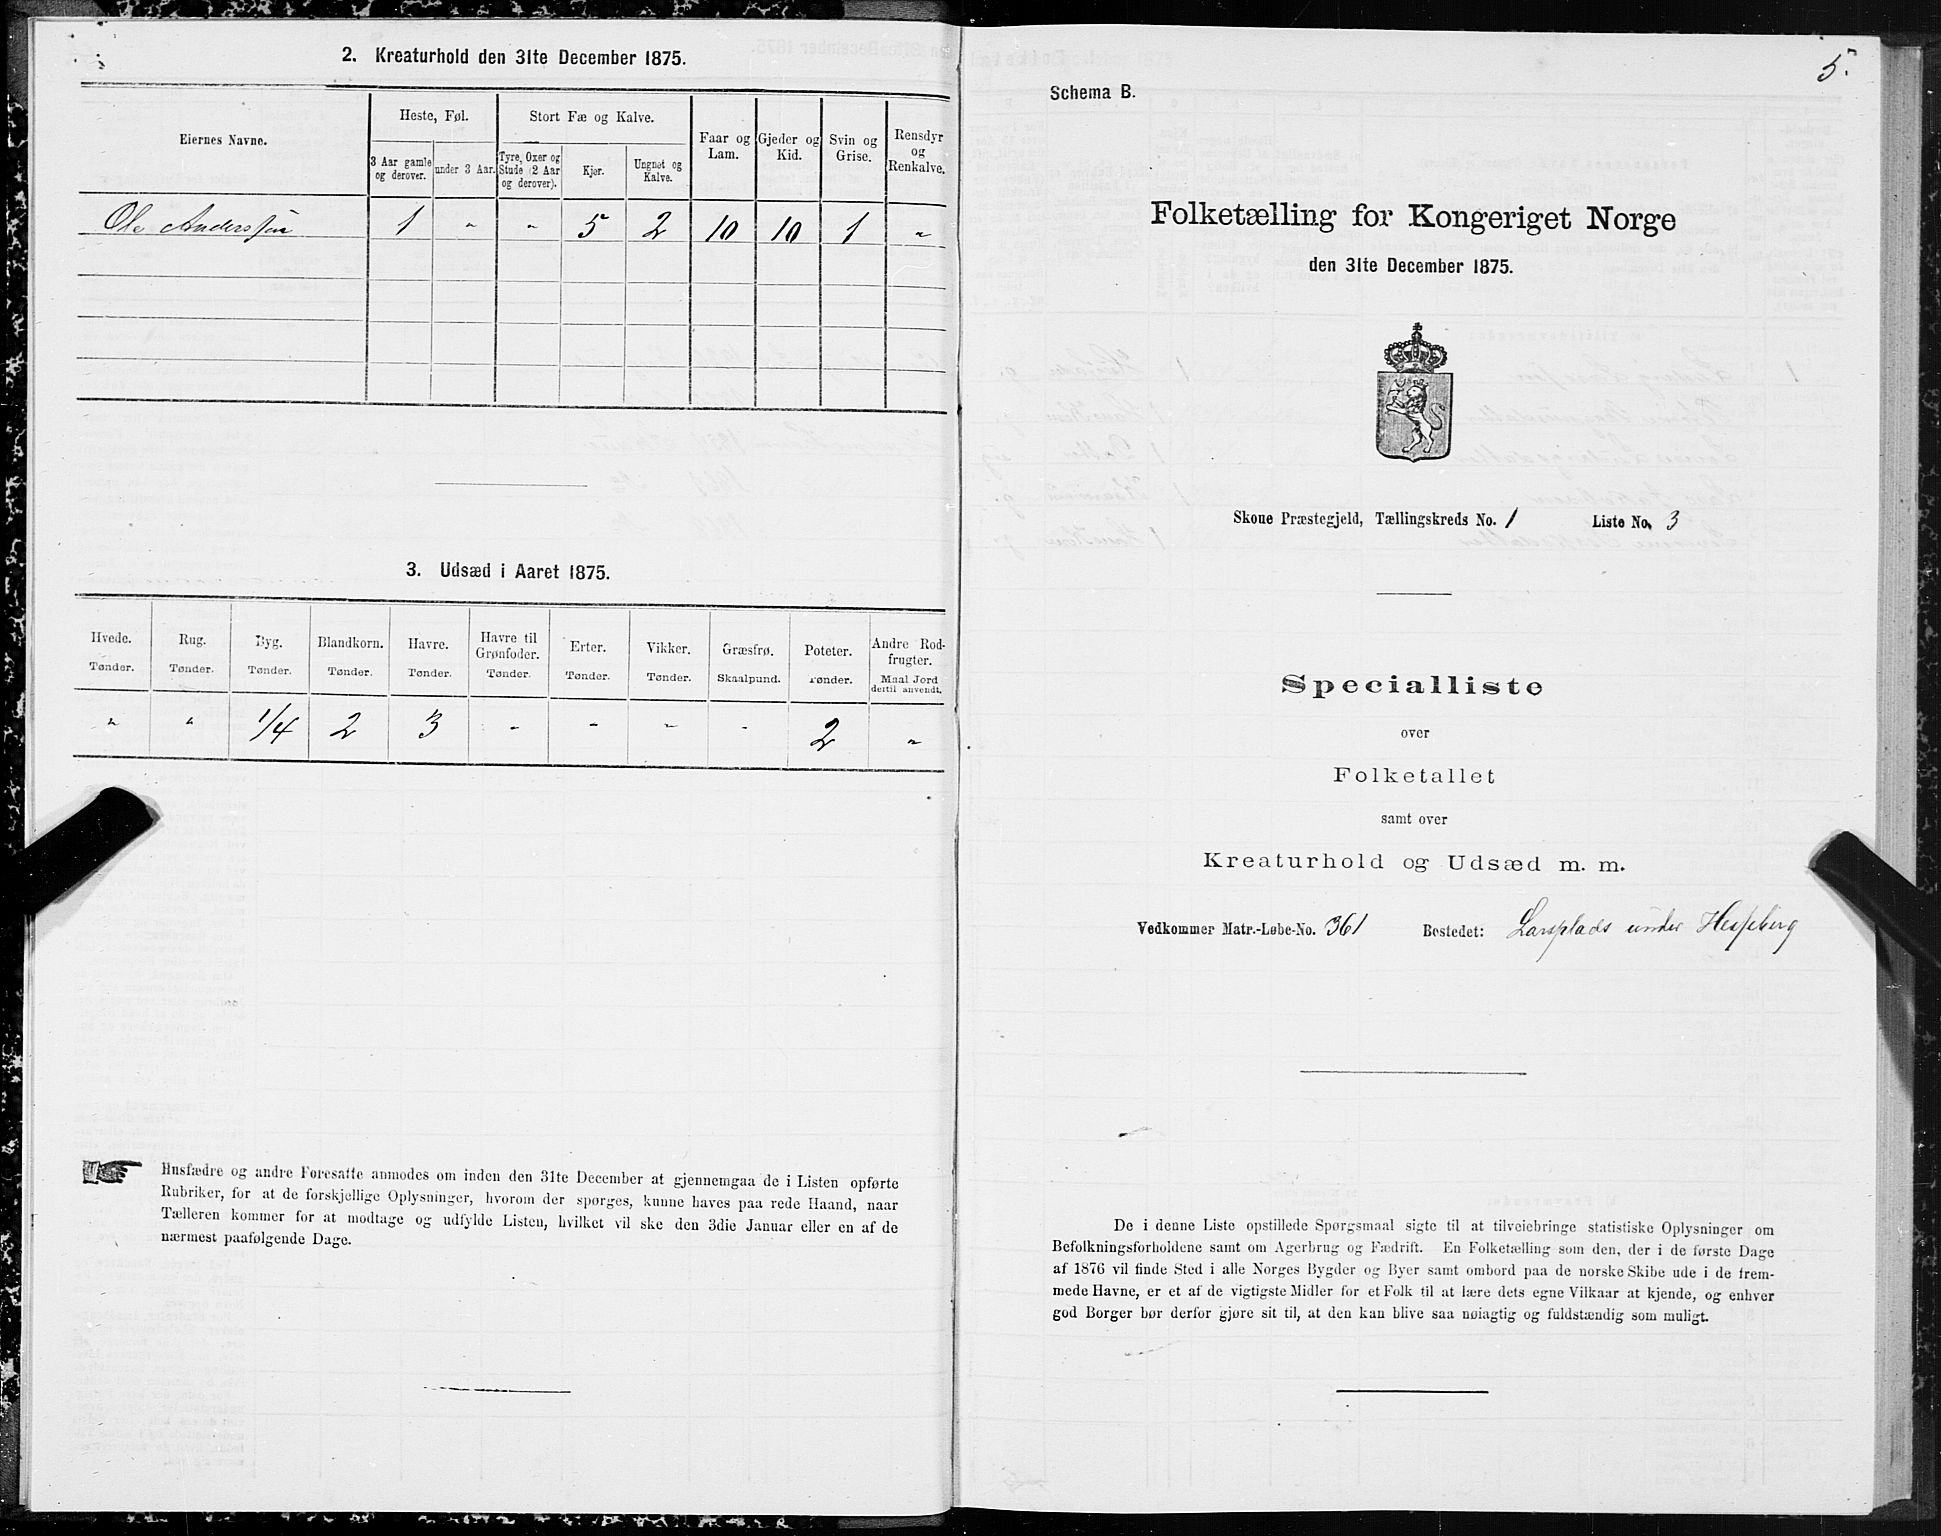 2. Kreaturhold den 31te December 1875.
Eiernes Navne.
Heste, Føl.
Stort Fæ og Kalve.
Faar og Lam.
Gjeder og Kid.
Svin og Grise.
Rensdyr og Renkalve.
3 Aar gamle og derover.
under 3 Aar.
Tyre, Oxer og Stude (2 Aar og derover).
Kjør.
Ungnøt og Kalve.
Ole Anderssen 1 " " 5 2 10 10 1 "
3. Udsæd i Aaret 1875.
Hvede. Rug. Byg. Blandkorn. Havre. Havre til Grønfoder. Erter. Vikker. Græsfrø. Poteter. Andre Rodfrugter.
Tønder. Tønder. Tønder. Tønder. Tønder. Tønder. Tønder. Tønder. Skaalpund. Tønder. Maal Jord dertil anvendt.
" " 1/4 2 3 - - - - 2 "
Husfædre og andre Foresatte anmodes om inden den 31te December at gjennemgaa de i Listen opførte
Rubriker, for at de forskjellige Oplysninger, hvorom der spørges, kunne haves paa rede Haand, naar
Tælleren kommer for at modtage og udfylde Listen, hvilket vil ske den 3die Januar eller en af de
nærmest paafølgende Dage.
5.
Schema B.
Folketælling for Kongeriget Norge
den 31te December 1875.
Skoue Præstegjeld, Tællingskreds No. 1 Liste No. 3
Specialliste
over
Folketallet
samt over
Kreaturhold og Udsæd m. m.
Vedkommer Matr.-Løbe-No. 361 Bostedet: Larsplads under Hesseberg
De i denne Liste opstillede Spørgsmaal sigte til at tilveiebringe statistiske Oplysninger om
Befolkningsforholdene samt om Agerbrug og Fædrift. En Folketælling som den, der i de første Dage
af 1876 vil finde Sted i alle Norges Bygder og Byer samt ombord paa de norske Skibe ude i de frem-
mede Havne, er et af de vigtigste Midler for et Folk til at lære dets egne Vilkaar at kjende, og enhver
god Borger bør derfor gjøre sit til, at den kan blive saa nøiagtig og fuldstændig som muligt.